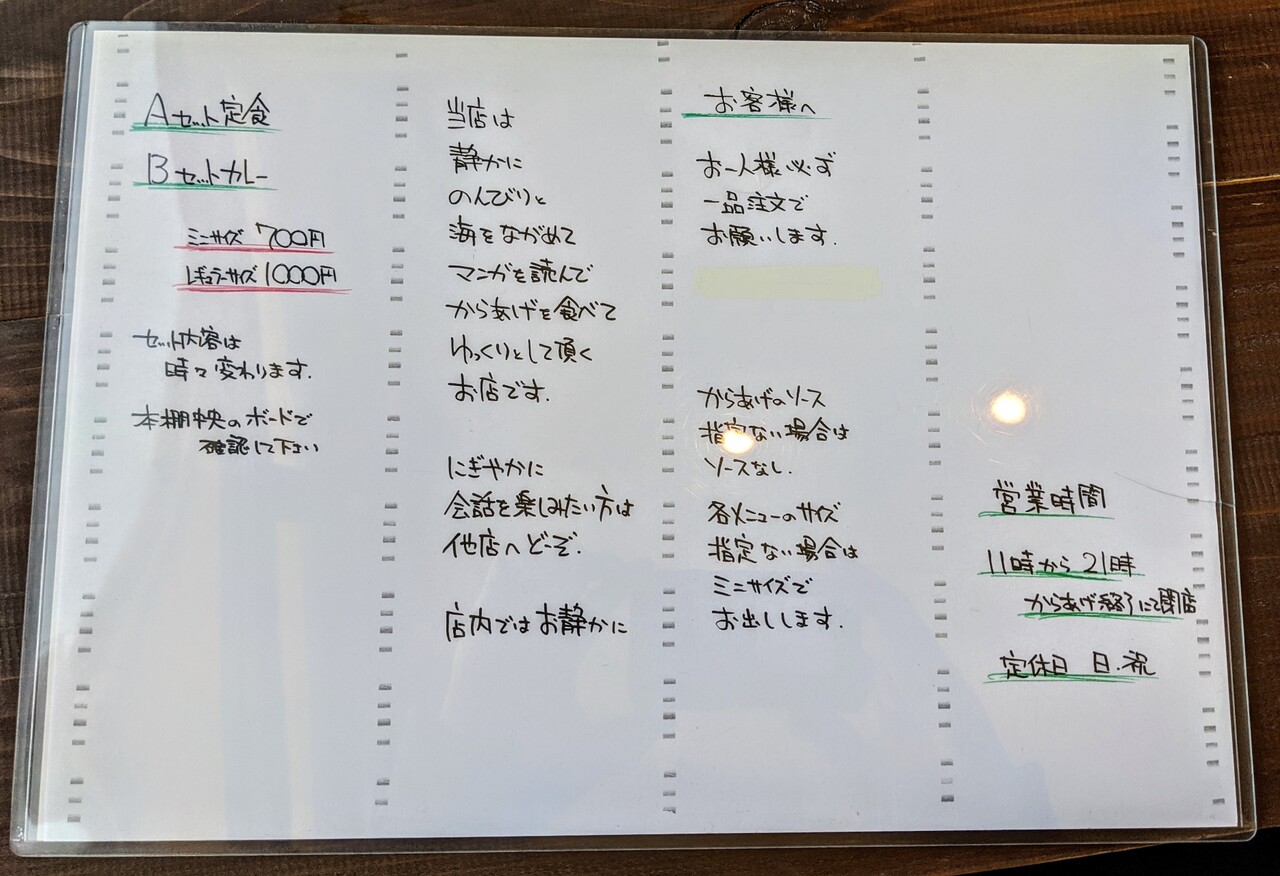 Aセット定食
Bセットカレー
ミニサイズ 700円
レギュラーサイズ 1000円
セット内容は
時々変わります.
本棚中央のボードで
確認して下さい
当店は
静かに
のんびりと
海をながめて
マンガを読んで
からあげを食べて
ゆっくりとして頂く
お店です.
にぎやかに
会話を楽しみたい方は
他店へどーぞ.
店内ではお静かに
お客様へ
お一人様必ず
一品注文で
お願いします.
からあげのソース
指定ない場合は
ソースなし.
各メニューのサイズ
指定ない場合は
ミニサイズで
お出しします.
営業時間
11時から21時
からあげ終了にて閉店
定休日 日・祝